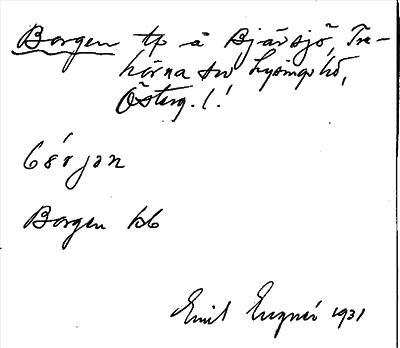 Borgen tp å Bjärsjö, Tre-
hörna sn Lysings hd,
Österg. l.
bórjan
Borgen bb
Emil Engner 1931